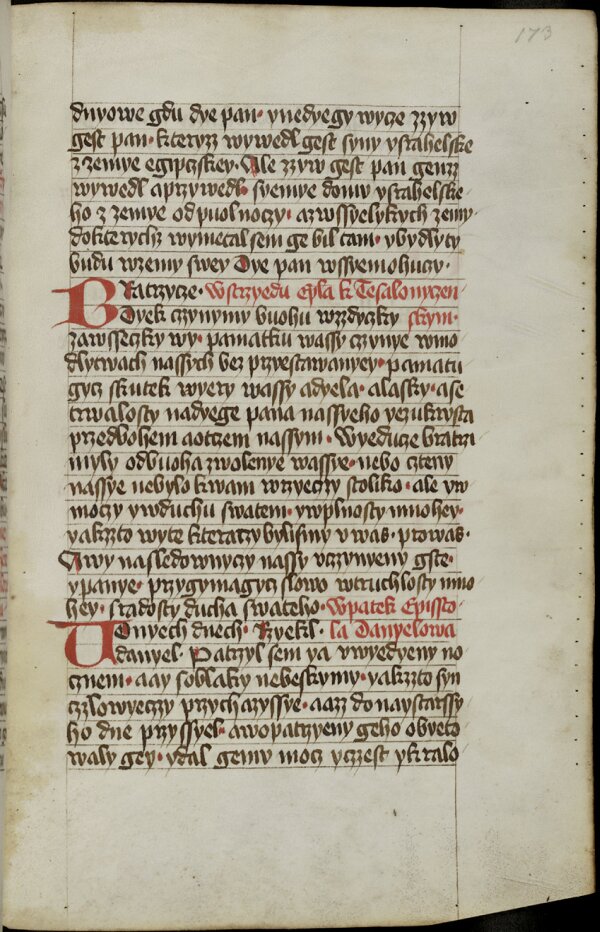 173
dnyowe gdu dye pan · ynedyegy wycze zzyw
gest pan · kteryz wywedl gest syny ysrahelske
z zemye egipczskey. Ale zzyw gest pan genz
wywedl a przywedl · syemye domu ysrahelske
ho z zemye od puolnoczy · azwssyelykych zemy
doktterychz wymetal sem ge bil tam · ybydlyty
budu wzemy swey Dye pan wssyemohuczy ·
Bratrzycze · Wstrzyedu epla k Tesalonyczen
Dyek czynymy buohu wzdyczky skym ·
zawsseczky wy · pamatku wassy czynye wmo
dlytwach nassych bez przyestawanyey · pamatu
gycz skutek wyery wassy adyela · alasky · ase
trwalosty nadyege pana nassyeho yezukrysta
przedbohem aotczem nassym · Wyeducze bratrzi
myly odbuoha zwolenye wassye · nebo czteny
nassye nebylo kwam wrzyeczy stoliko · ale yw
moczy ywduchu swatem · ywplnosty mnohey ·
yakzto wyte kteraczy bylismy uwas · prowas ·
Awy nasledownyczy nassy uczynyeny gste ·
ypanye · przygymagycz slowo wtruchlosty mno
hey · sradosty ducha swateho · Wpatek Epissto
W Onyech dnech · Rzyekl · la Danyelowa
danyel · Patrzyl sem ya uwyedyeny no
cznem · aay soblaky nebeskymy · yakzto syn
czlowyeczy przychazyssye · aaz donaystarssy
ho dne przyssyel · awopatrzyeny geho obyeto
waly gey · ydal gemu mocz yczzest ykralo